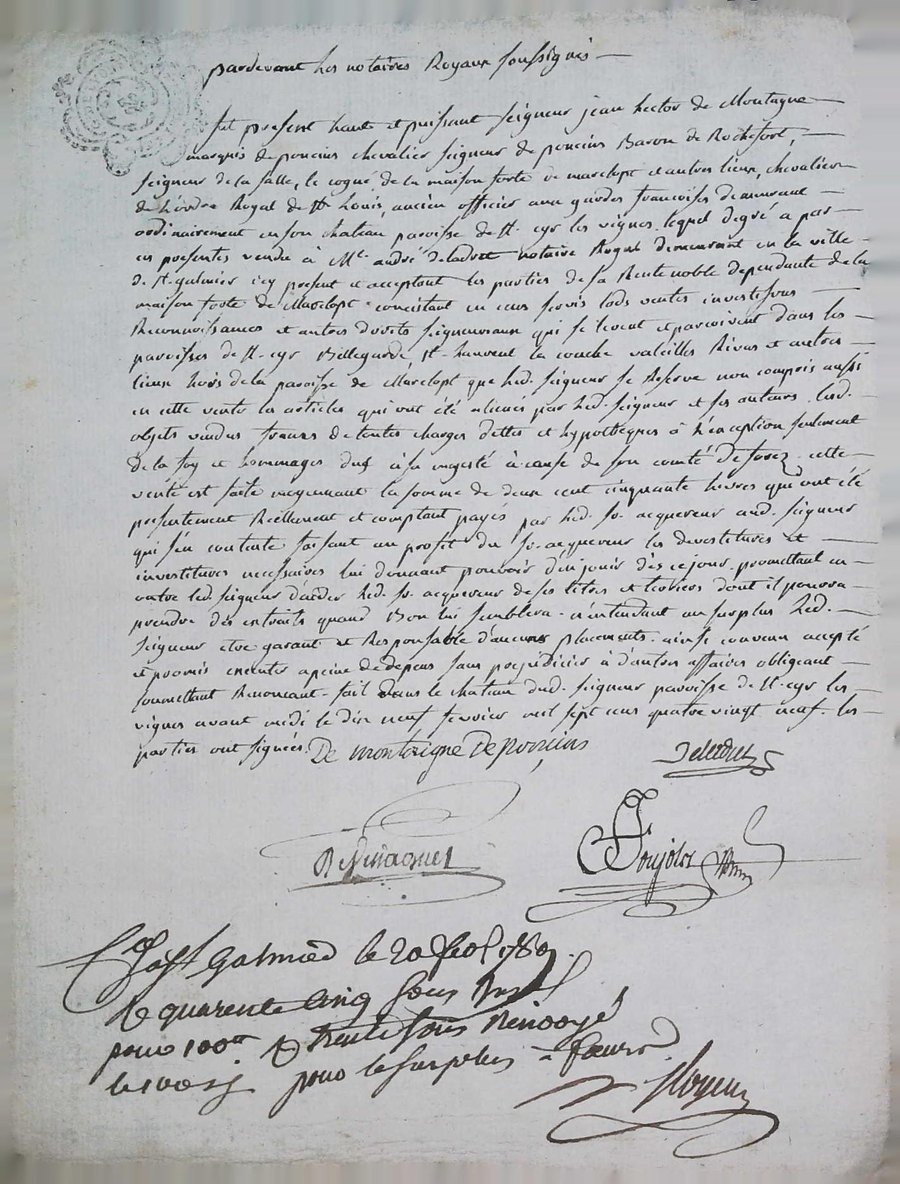 pardevant Les notaires Royaux soussignés
fut present haut et puissant seigneur jean hector de Montagne
marquis de poncins chevalier seigneur de poncins Baron de Rochefort,
seigneur de la salle, le coqué, de la maison forte de marclopt et autres lieux, chevalier
de L'ordre Royal de St. Louis, ancien officier aux gardes francoises demeurant
ordinairement en son chateau paroisse de St. cyr les vignes, lequel de gré a par
ces presentes vendu à Me. andré delesdret notaire Royal demeurant en la ville
de St. galmier icy present et acceptant les parties de sa Rente noble dependante de la
maison forte de Marclopt consistant en cens servis lods ventes investisons
Reconnoissances et autres droits seigneuriaux qui se levent et percoivent dans les
paroisses de St. cyr Bellegarde, St. Laurent la conche valeilles Rivas et autres
lieux hors de la paroisse de Marclopt que led. seigneur se Reserve non compris aussi
en cette vente les articles qui ont été alienés par led. seigneur et ses auteurs. lesd.
objets vendus francs de toutes charges dettes et hypotheques à L'exception seulement
de la foy et hommages dus à sa majesté à cause de son comté de forez. cette
vente est faite moyennant la somme de deux cent cinquante livres qui ont été
presentement Réellement et comptant payés par led. sr. acquereur aud. seigneur
qui s'en contente faisant au profit du sr. acquereur les devestitures et
investitures necessaires lui donnant pouvoir d'en jouir dès ce jour. promettant en
outre led. seigneur d'aider led. sr. acquereur de ses titres et terriers dont il pourra
prendre des extraits quand Bon lui semblera. n'entendant au surplus Led.
seigneur etre garant et Responsable d'aucuns placements. ainsi convenu accepté
et promis executer a peine de depens sans prejudicier à d'autres affaires obligeant
soumettant Renoncant. fait dans le chateau dud. seigneur paroisse de St. cyr les
vignes avant midi le dix neuf fevrier mil sept cens quatre vingt neuf. les
parties ont signées. De montaigne De poncins
Delesdret
Pujolos
à St Galmier le 20 feb 1789.
R quarente cinq sous
pour 100er & trente sous Renvoyé
le 100er pour le surplus à feurs